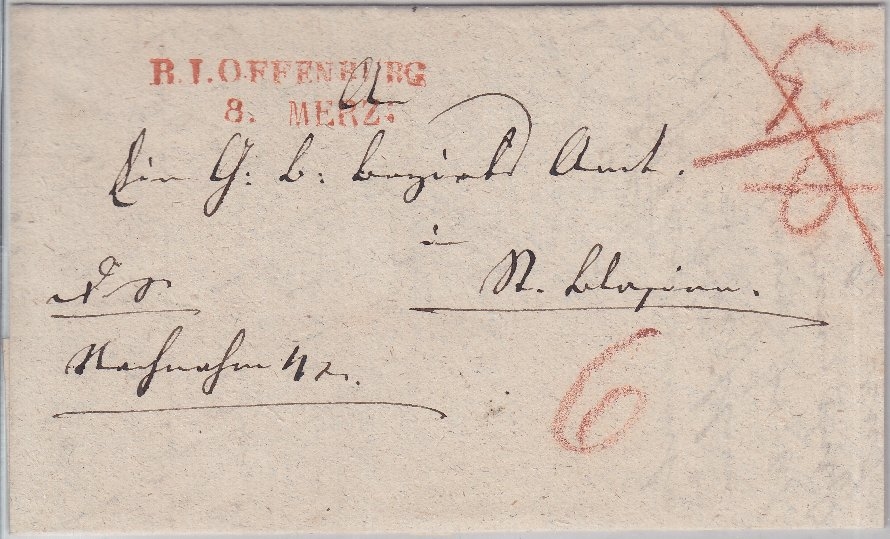 R.I.OFFENBURG
8. MERZ.
An
Ein G: b: Bezirks Amt.
in
St. Blasien.
Nachnahm 4 x.
6